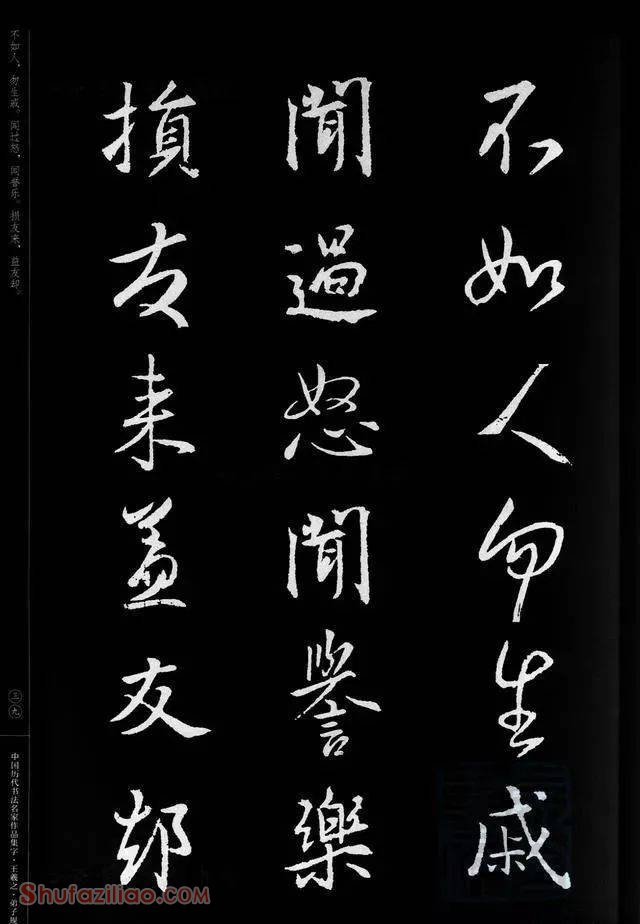 不如人勿生戚
聞過怒聞譽樂
損友来益友却
不如人，勿生戚。闻过怒，闻誉乐。损友来，益友却。
三九
中国历代书法名家作品集字·王羲之·弟子规
Shufaziliao.com